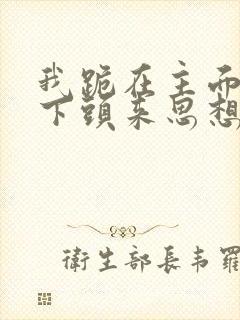 我跪在主而
下頭来思想
衛生部長韦羅